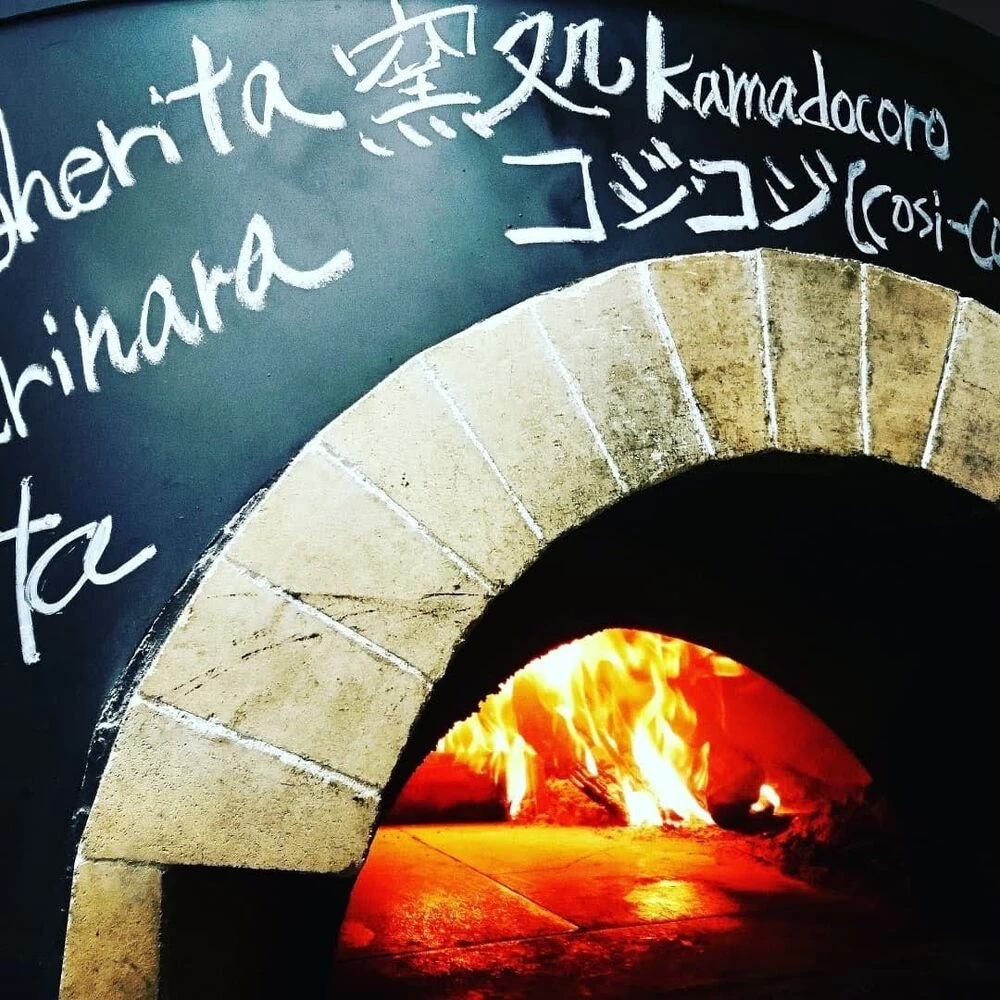 gherita 窯処 Kamadocoro
コジコジ(Cosi-Co
rinara
ta